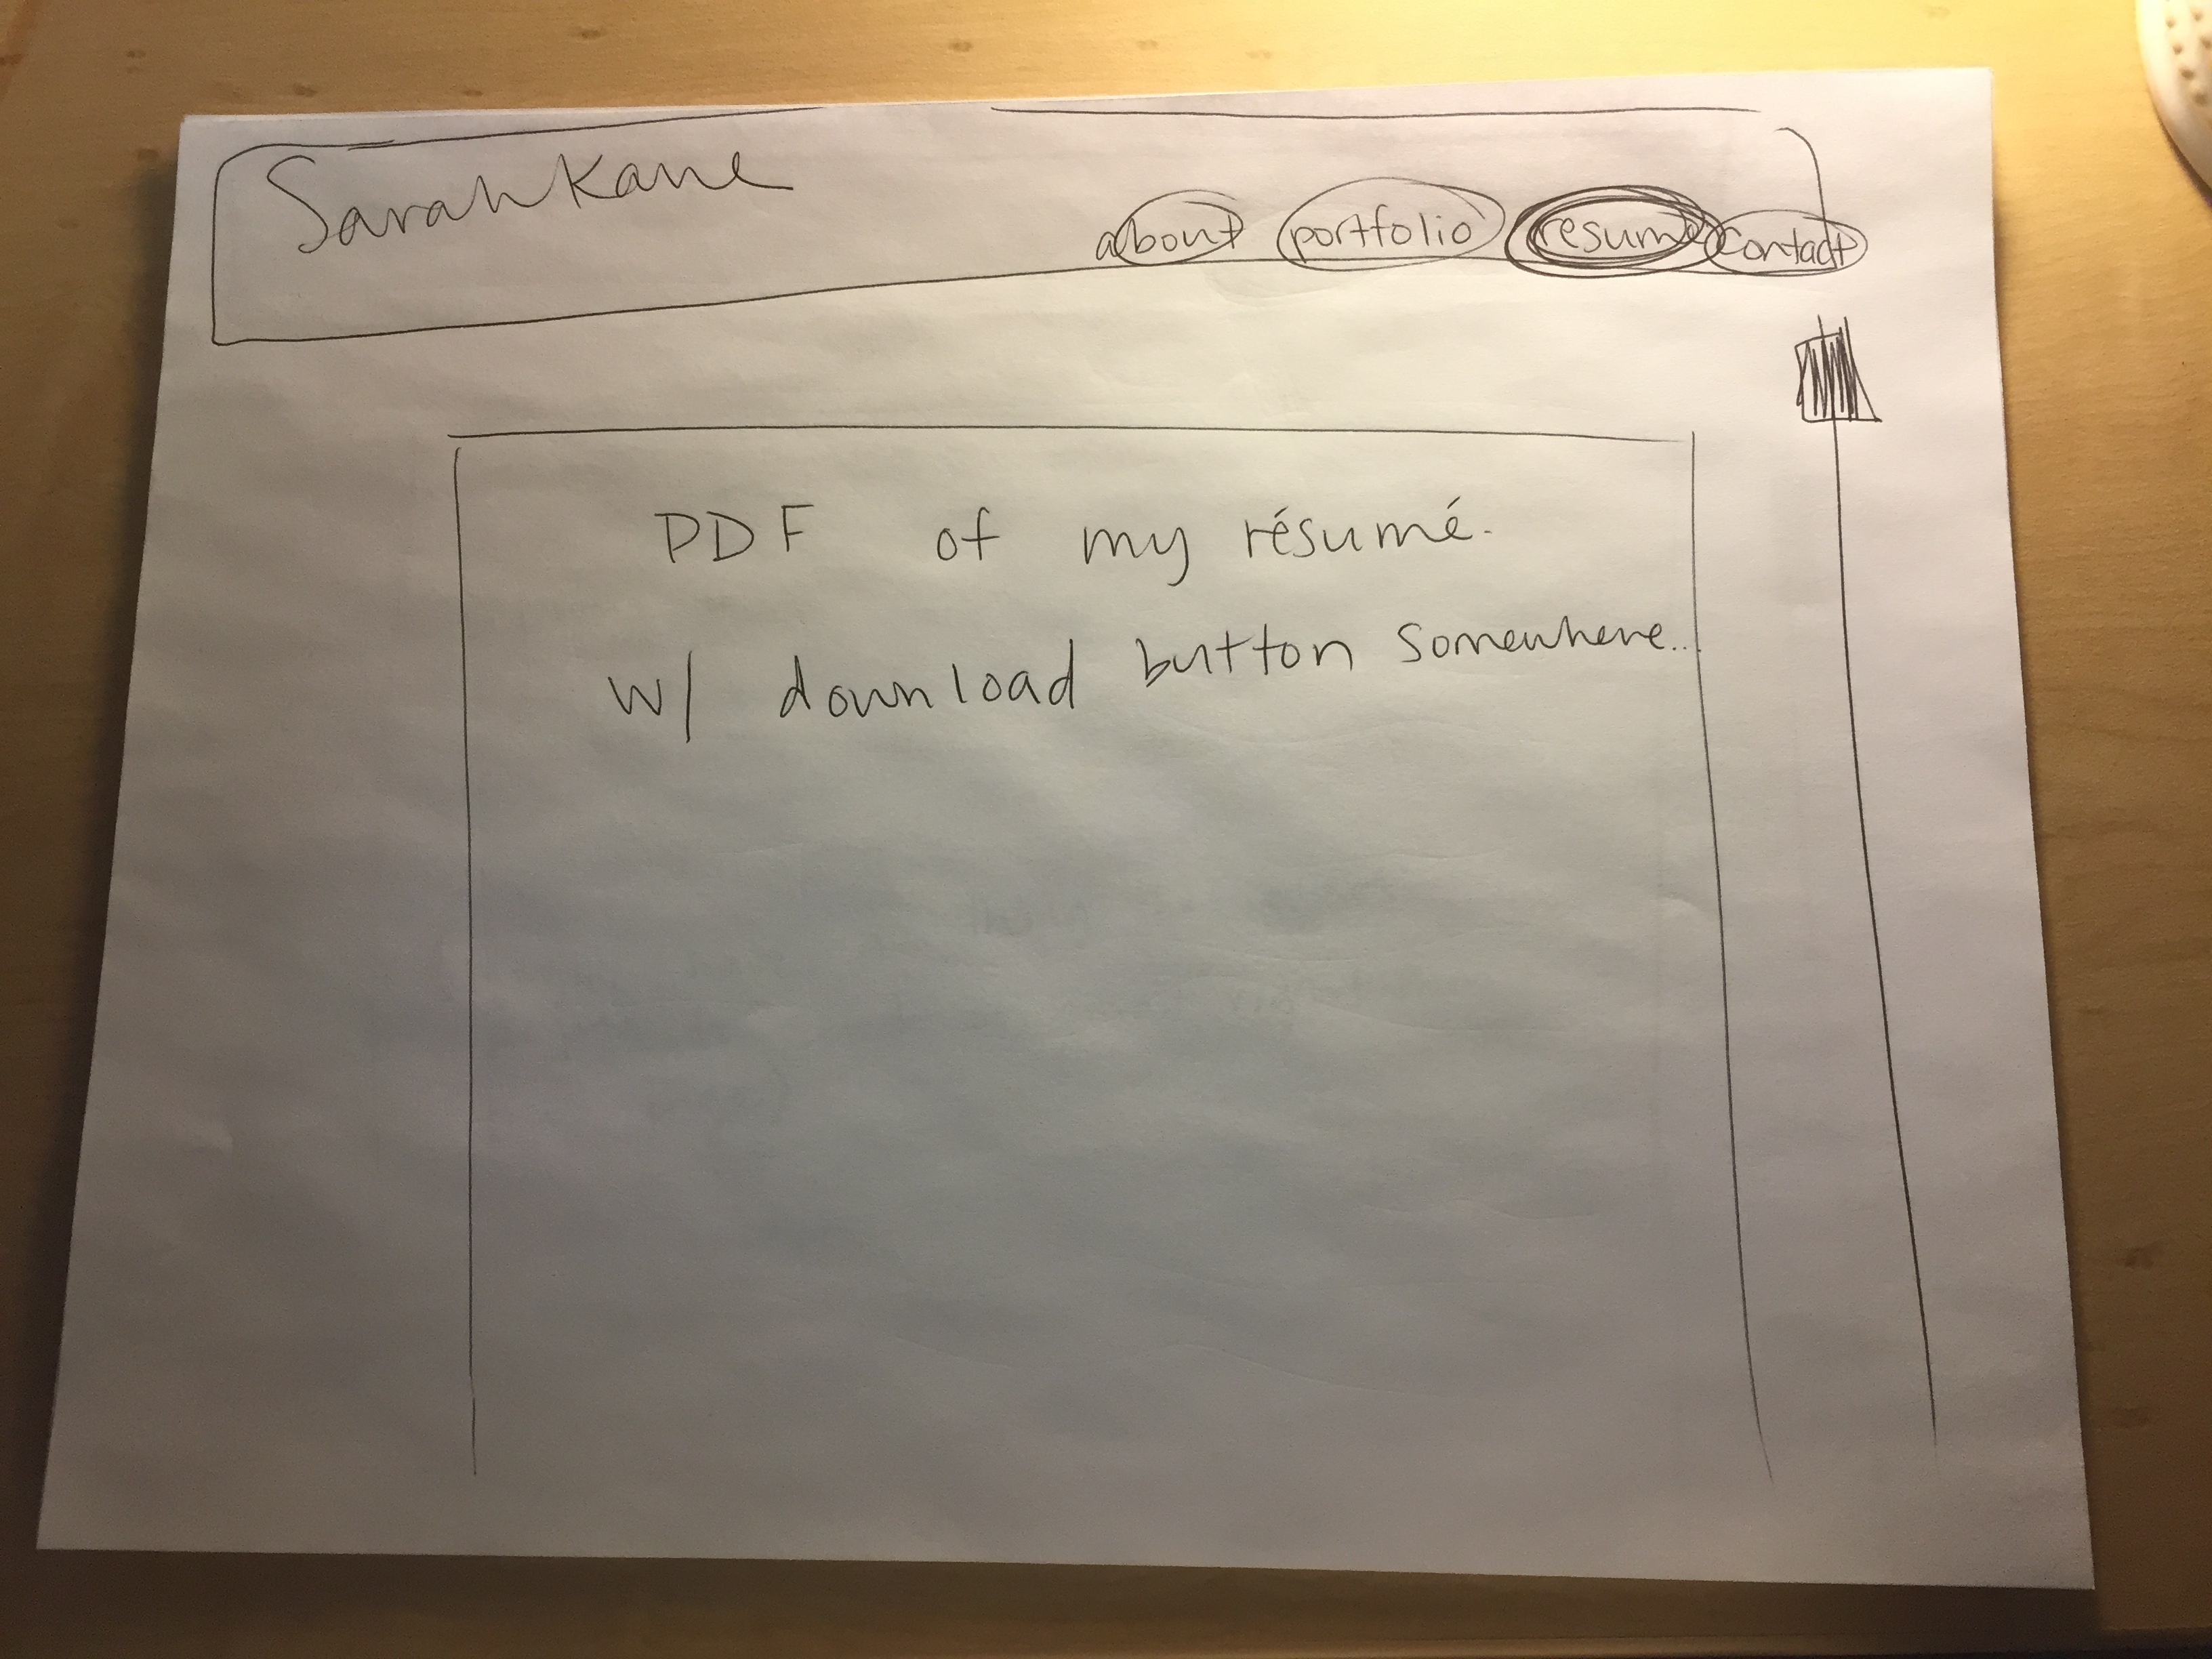 Sarah Kane
about portfolio resume contact
PDF of my résumé.
w/ download button somewhere...